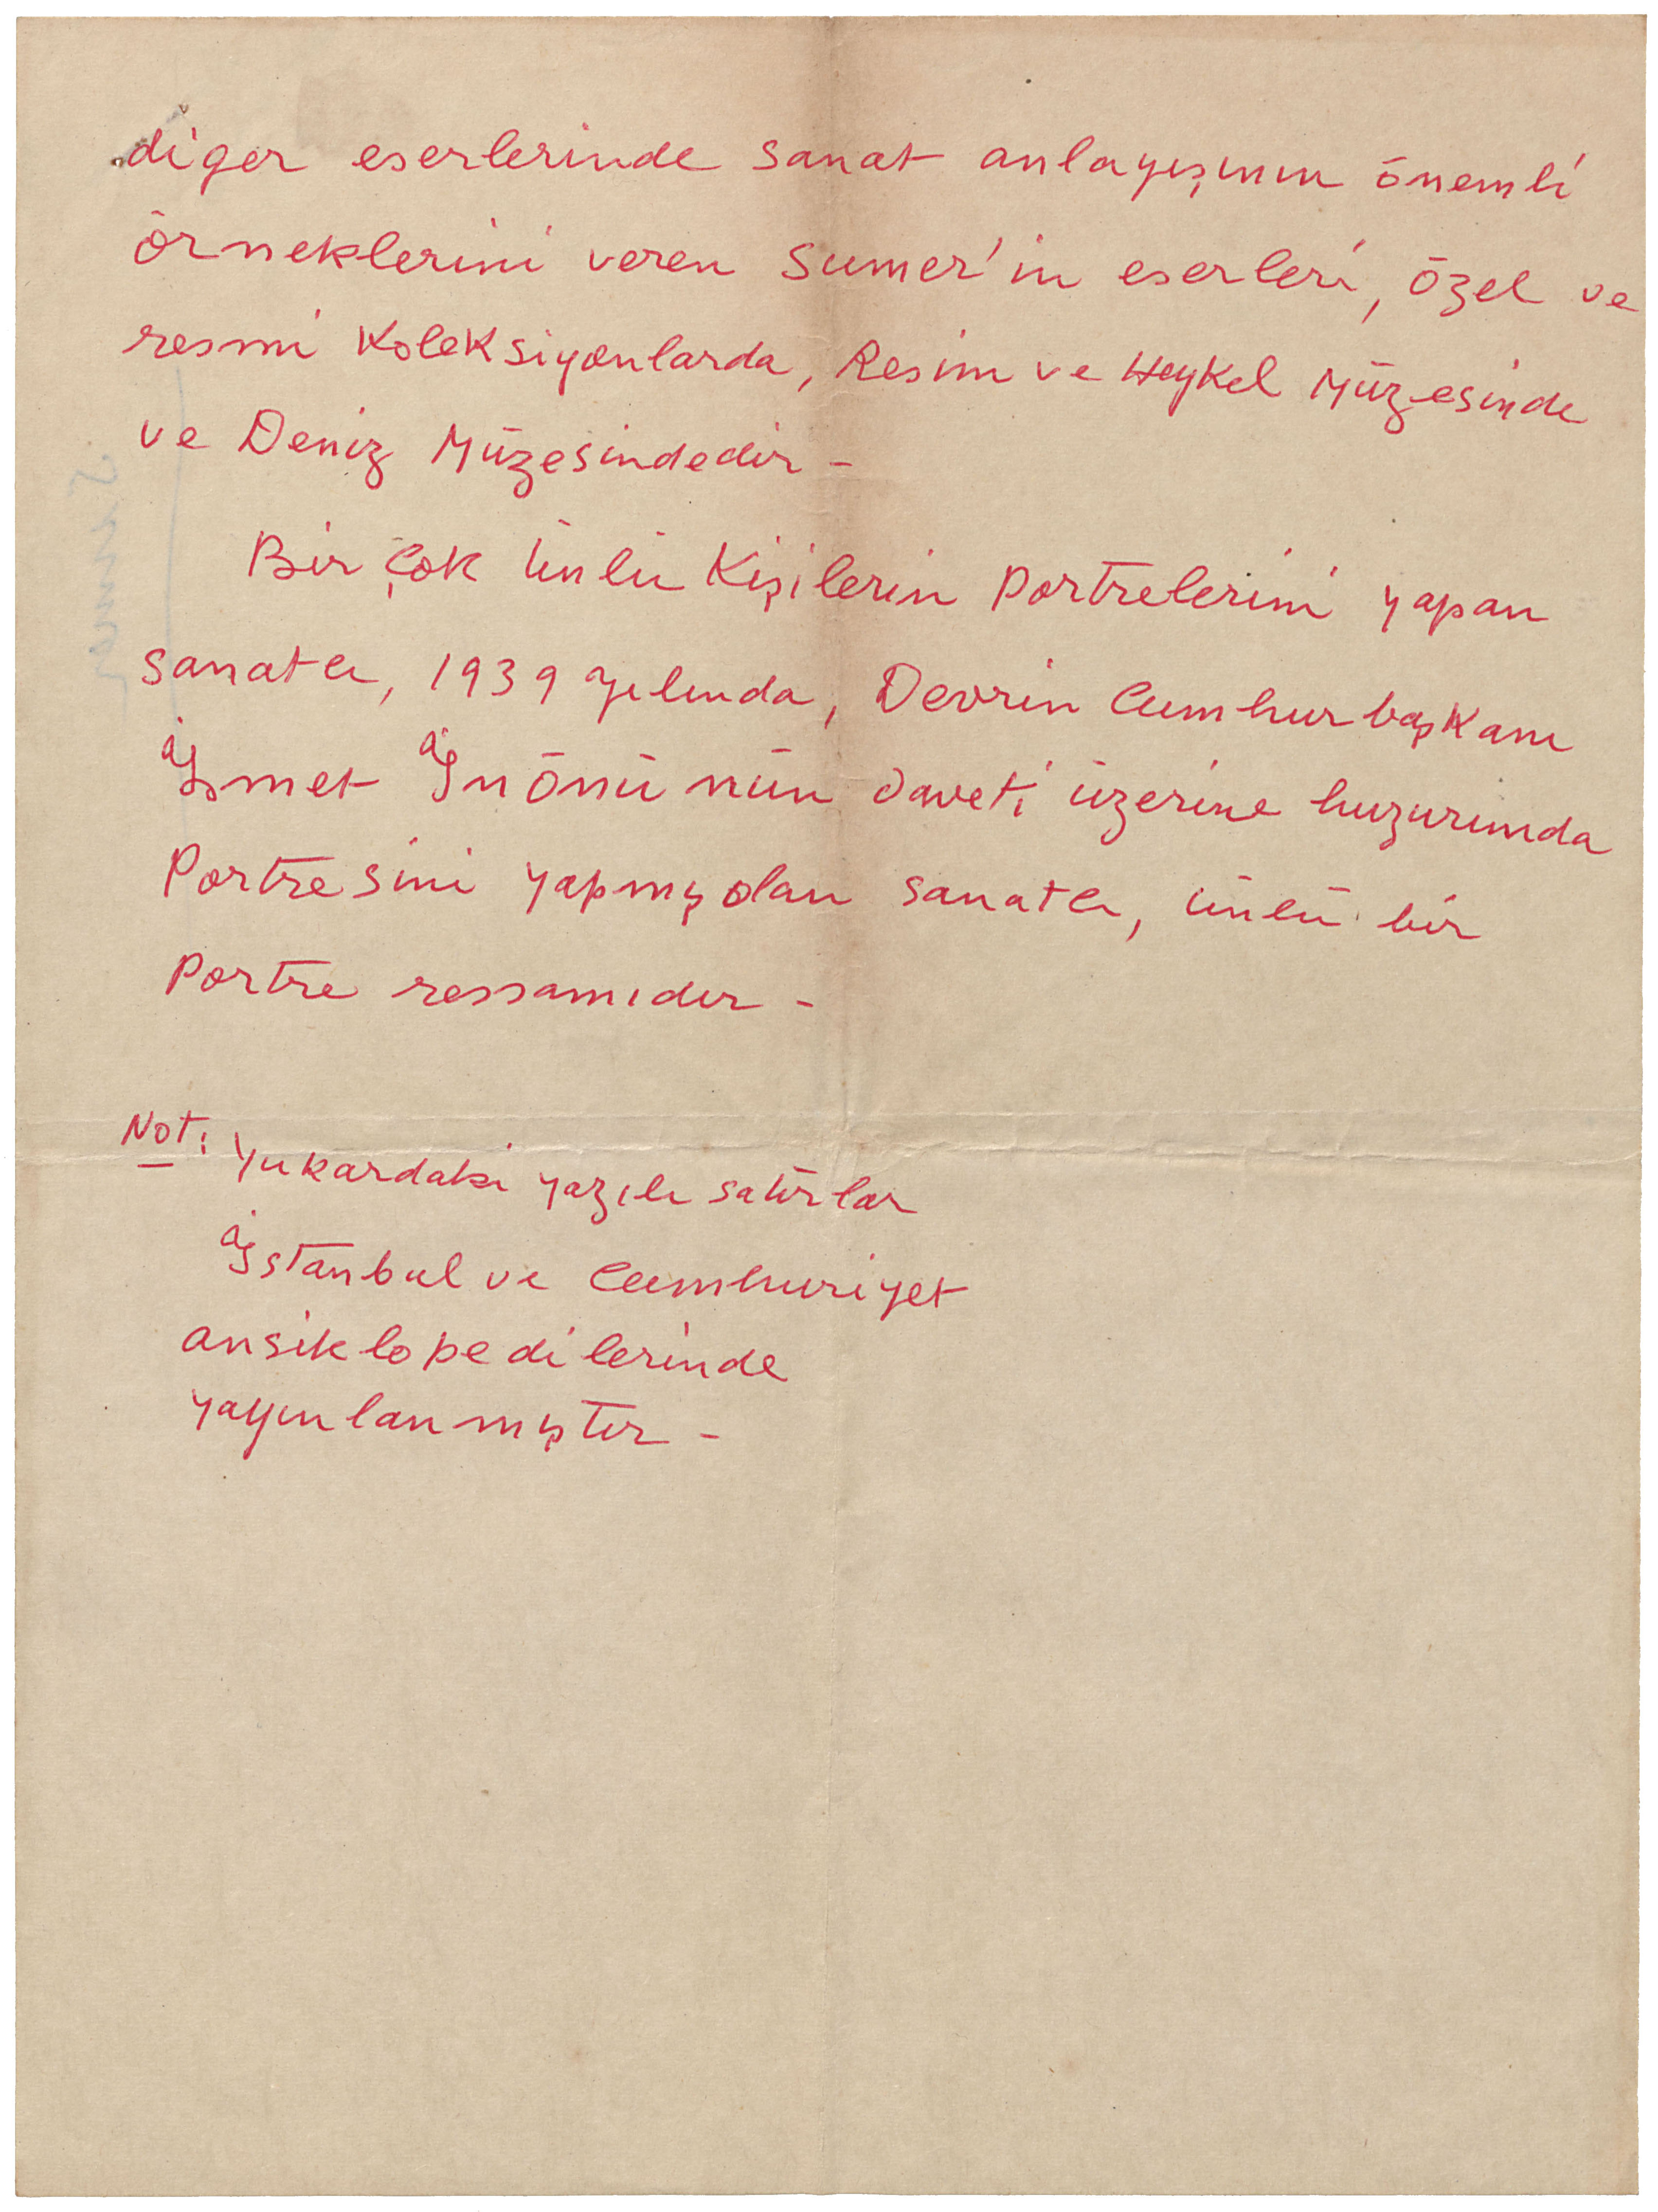 diğer eserlerinde sanat anlayışının önemli
örneklerini veren Sumer'in eserleri, özel ve
resmi Koleksiyonlarda, Resim ve Heykel Müzesinde
ve Deniz Müzesindedir -
Bir çok ünlü Kişilerin portrelerini yapan
sanatcı, 1939 yılında, Devrin Cumhurbaşkanı
İsmet İnönü nün daveti üzerine huzurunda
Portresini yapmış olan sanatcı, ünlü bir
Portre ressamıdır -
Not: Yukardaki yazılı satırlar
İstanbul ve Cumhuriyet
ansiklopedilerinde
yayınlanmıştır -